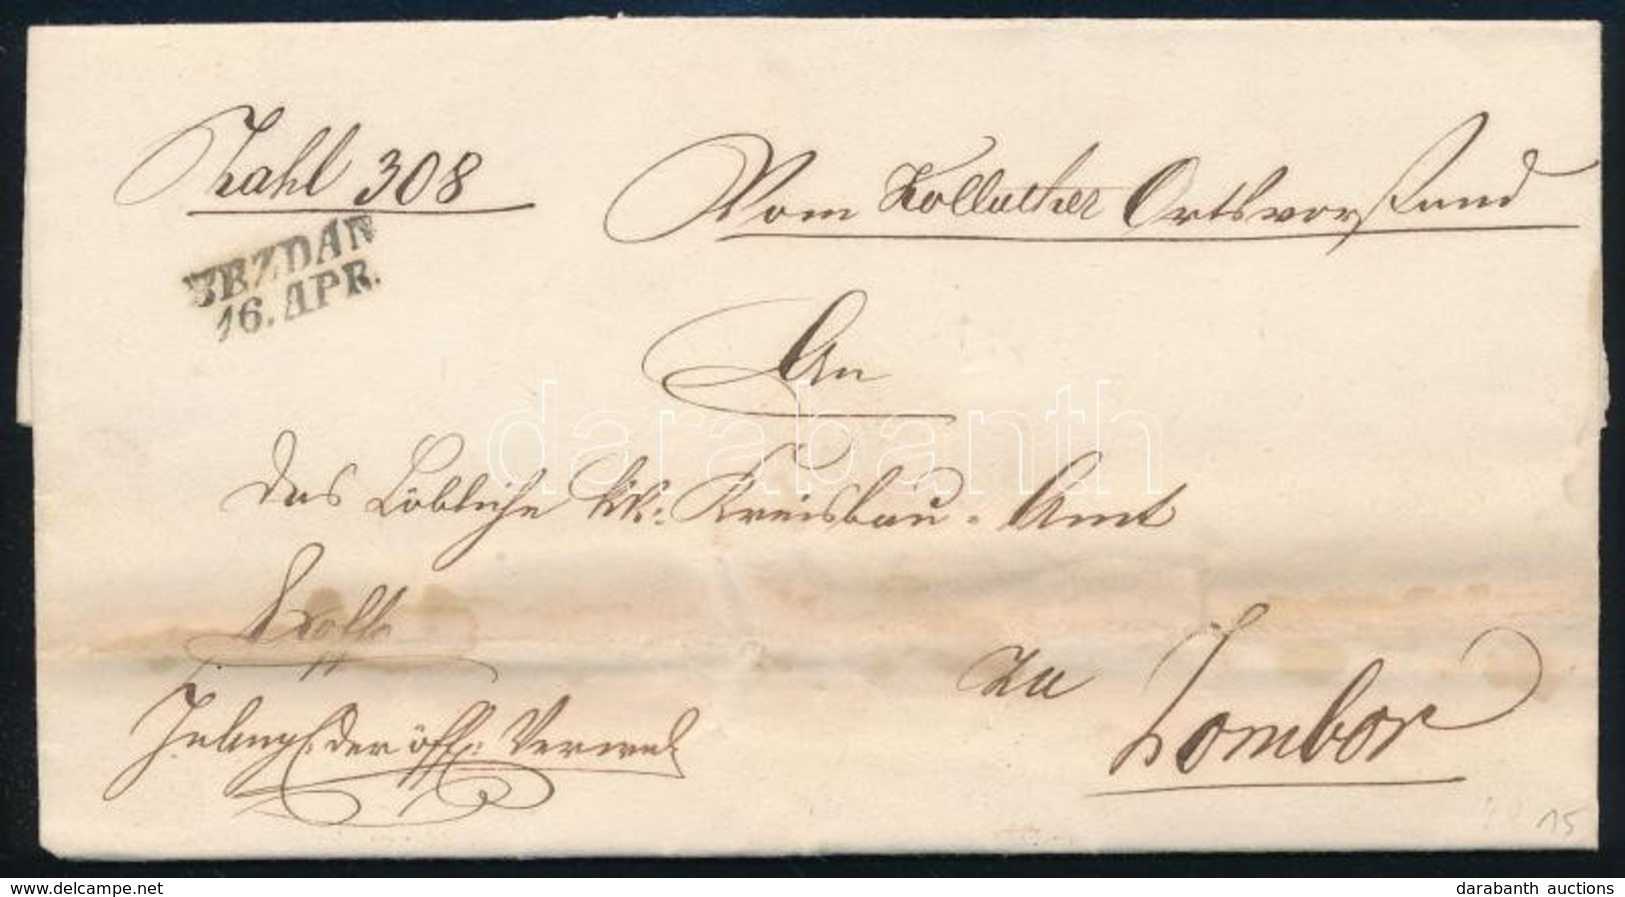 Zahl 308
Vom Kolluther Ortsvorstand
BEZDAN
16. APR.
An
das Löbliche kk: Kreisbau-Amt
zu
Zombor
der öff: Verwend
15
darabanth
www.delcampe.net
darabanth auctions